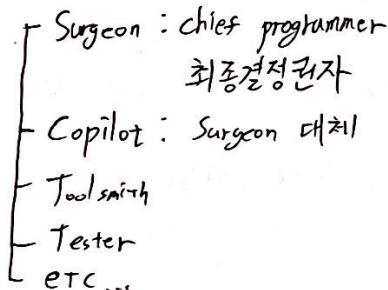 Surgeon : chief programmer
최종결정권자
Copilot : Surgeon 대체
Toolsmith
Tester
etc...